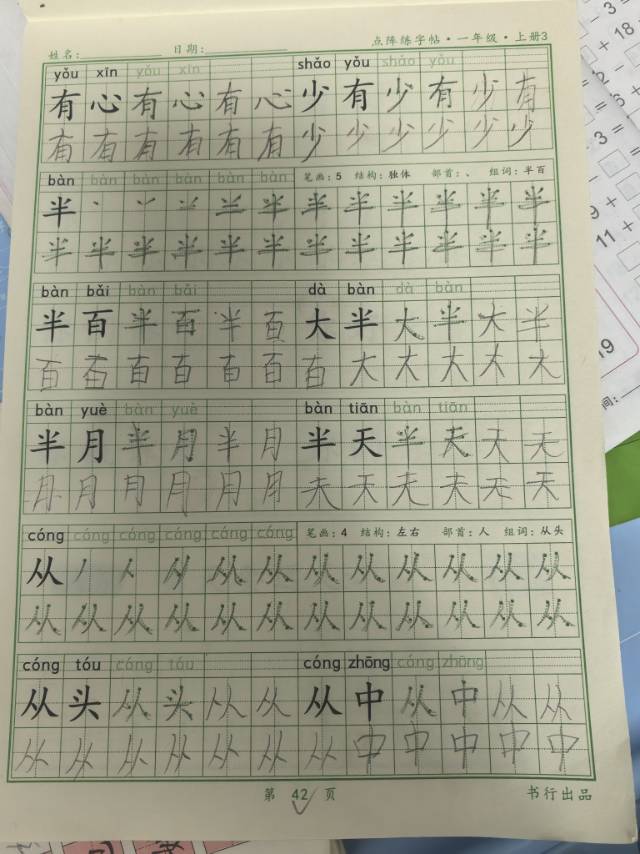 姓名: 日期: 点阵练字帖·一年级·上册3
yǒu xīn yǒu xīn shǎo yǒu shǎo yǒu
有 心 有 心 有 心 少 有 少 有 少 有
有 有 有 有 有 有 少 少 少 少 少 少
bàn bàn bàn bàn bàn bàn 笔画:5 结构:独体 部首:丶 组词:半百
半 丶 丷 半 半 半 半 半 半
半 半 半 半 半 半 半 半 半 半 半 半
bàn bǎi bàn bǎi dà bàn dà bàn
半 百 半 百 半 百 大 半 大 半 大 半
百 百 百 百 百 百 百 大 大 大 大 大
bàn yuè bàn yuè bàn tiān bàn tiān
半 月 半 月 半 月 半 天 半 天 天 天
月 月 月 月 月 月 天 天 天 天 天 天
cóng cóng cóng cóng cóng cóng 笔画:4 结构:左右 部首:人 组词:从头
从 丿 人 从 从 从 从 从 从 从 从
从 从 从 从 从 从 从 从 从 从 从 从
cóng tóu cóng tóu cóng zhōng cóng zhōng
从 头 从 头 从 从 从 中 从 中 从 从
从 从 从 从 从 从 从 中 中 中 中 中
第 42 页 书行出品